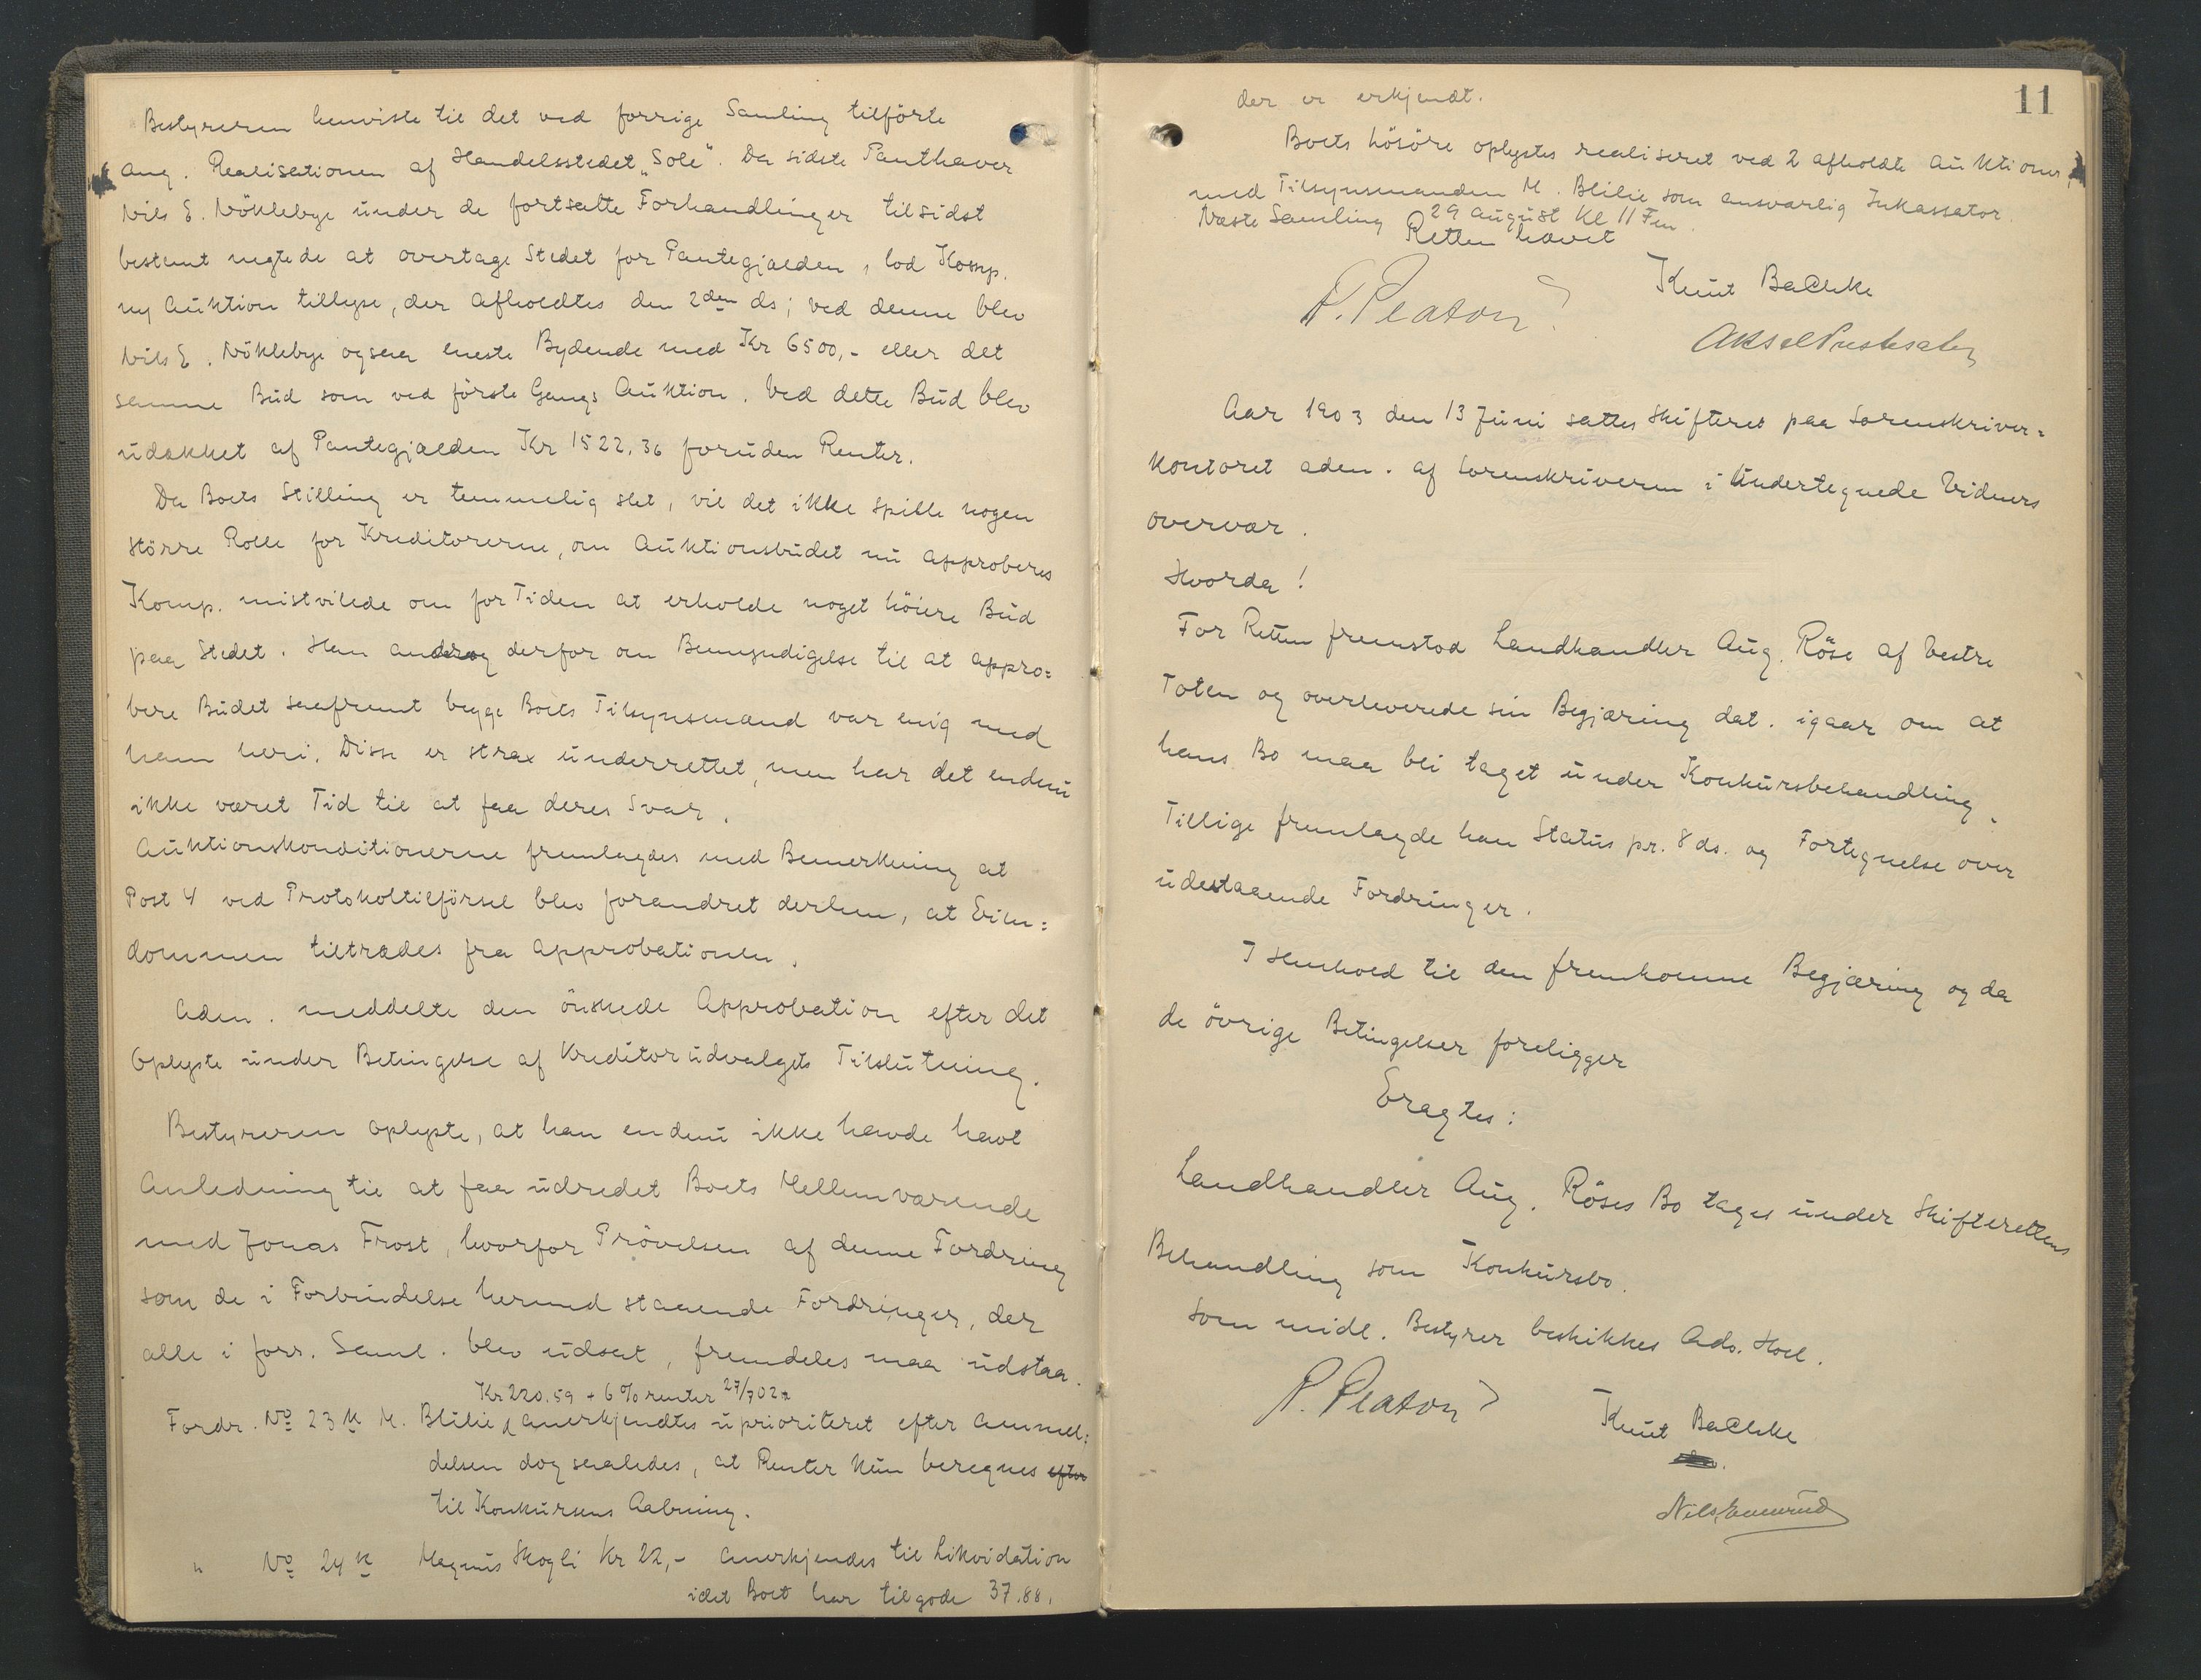 Bestyreren henviste til det ved forrige Samling tilförte
ang. Realisationen af Handelsstedet „Sole“. Da sidste Panthaver
Nils E. Nöklebye under de fortsatte Forhandlinger tilsidst
bestemt negtede at overtage Stedet for Pantegjælden, lod Komp.
ny Auktion tillyse, der afholdtes den 2den ds; ved denne blev
Nils E. Nöklebye ogsaa eneste Bydende med Kr 6500,- eller det
samme Bud som ved förste Gangs Auktion. Ved dette Bud blev
udækket af Pantegjælden Kr 1522,36 foruden Renter.
Da Boets Stilling er temmelig slet, vil det ikke spille nogen
större Rolle for Kreditorerne, om Auktionsbudet nu approberes
Komp. mistvilede om for Tiden at erholde noget höiere Bud
paa Stedet. Han androg derfor om Bemyndigelse til at appro=
bere Budet saafremt begge Boets Tilsynsmænd var enig med
ham heri. Disse er strax underrettet, men har det endnu
ikke været Tid til at faa deres Svar.
Auktionskonditionerne fremlagdes med Bemerkning at
Post 4 ved Protokoltilförsel blev forandret derhen, at Eien=
dommen tiltrædes fra Approbationen.
Adm. meddelte den önskede Approbation efter det
Oplyste under Betingelse af Kreditorudvalgets Tilslutning.
Bestyreren oplyste, at han endnu ikke havde havt
Anledning til at faa udredet Boets Mellemværende
med Jonas Frost, hvorfor Prövelsen af denne Fordring
som de i Forbindelse hermed staaende Fordringer, der
alle i forr. Saml. blev udsat, fremdeles maa udstaa.
Kr 220.59 + 6% renter 27/7 02
Fordr. No 23 M. Blilie anerkjendtes uprioriteret efter Anmel=
delsen dog saaledes, at Renter kun beregnes efter
til Konkursens Aabning.
" No 24 Magnus Skogli Kr 22,- anerkjendes til Likvidation
idet Boet har tilgode 37.88.
11
der er erkjendt.
Boets Lösöre oplystes realiseret ved 2 afholdte Auktioner,
med Tilsynsmanden M. Blilie som ansvarlig Inkassator.
Næste Samling 29 August Kl 11 Fm.
Retten hævet
P. Platou
Knut Bachke
Aksel Prestesæter
Aar 1903 den 13 Juni sattes Skifteret paa Sorenskriver=
kontoret adm. af Sorenskriveren i Undertegnede Vidners
overvær.
Hvorda!
For Retten fremstod Landhandler Aug. Röse af Vestre
Toten og overleverede sin Begjæring dat. igaar om at
hans Bo maa bli taget under Konkursbehandling.
Tillige fremlagde han Status pr. 8 ds. og Fortegnelse over
udestaaende Fordringer.
I Henhold til den fremkomne Begjæring og da
de övrige Betingelser foreligger
Eragtes:
Landhandler Aug. Röses Bo tages under Skifterettens
Behandling som Konkursbo.
Som midl. Bestyrer beskikkes Adv. Hoel.
P. Platou
Knut Bachke
Nils